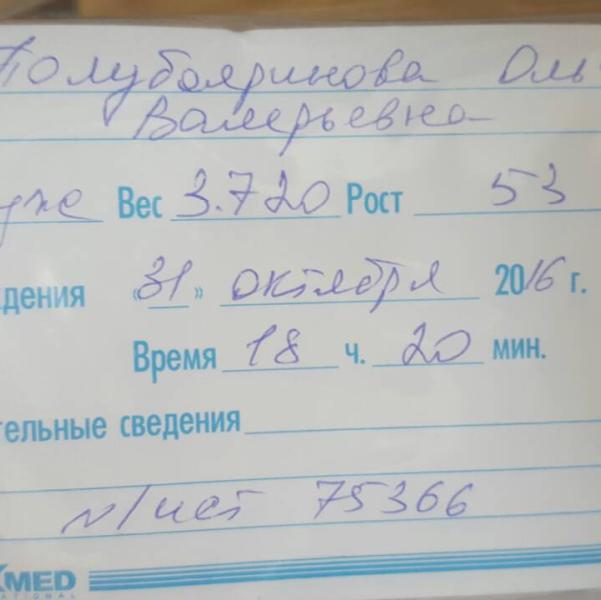 Полубояринова Оль
Валерьевна
уже Вес 3.720 Рост 53
дения «31» октября 2016 г.
Время 18 ч. 20 мин.
тельные сведения
и/ист 75366
MED